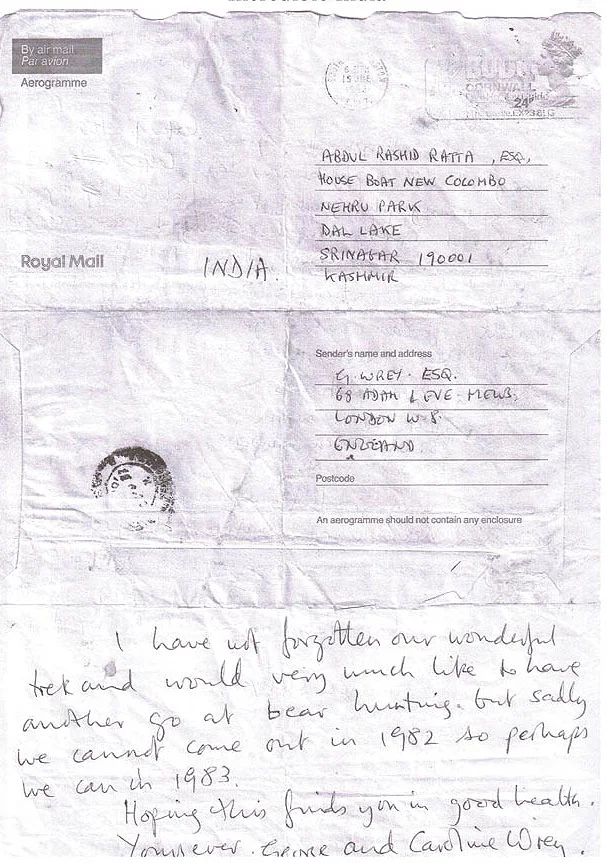 By air mail
Par avion
Aerogramme
BUDE
CORNWALL
24P
ABDUL RASHID RATTA, ESQ,
HOUSE BOAT NEW COLOMBO
NEHRU PARK
DAL LAKE
SRINAGAR 190001
KASHMIR
Royal Mail
INDIA.
Sender's name and address
G. WREY. ESQ.
68 ADAM & EVE MEWS.
LONDON W.8.
ENGLAND
Postcode
An aerogramme should not contain any enclosure
I have not forgotten our wonderful
trek and would very much like to have
another go at bear hunting. but sadly
we cannot come out in 1982 so perhaps
we can in 1983.
Hoping this finds you in good health.
Yours ever. George and Caroline Wrey.